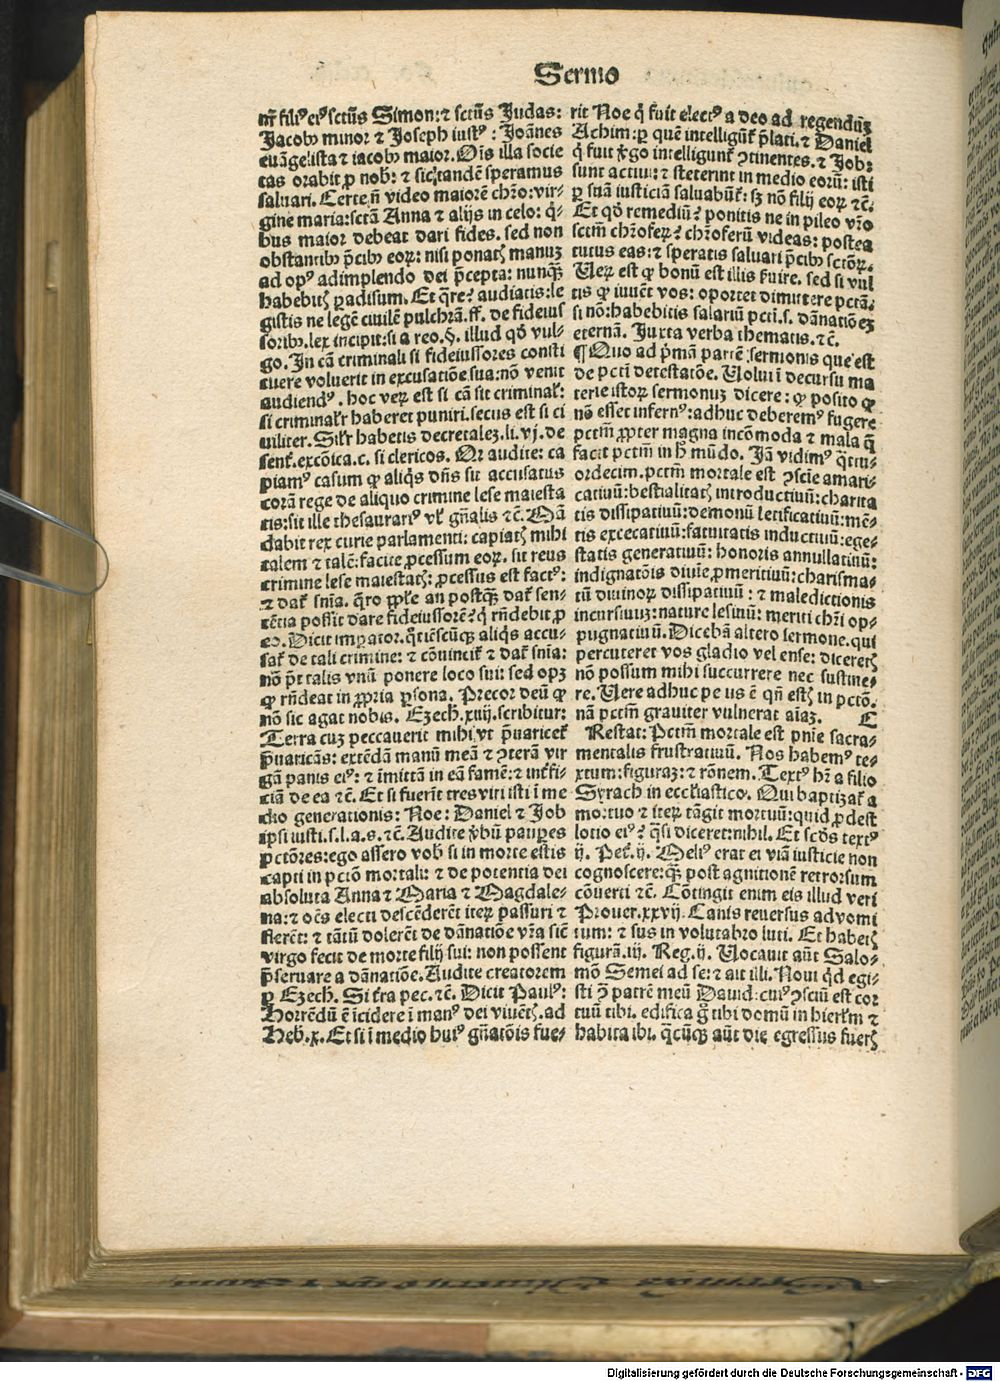 Sermo
nr̄ filiꝰ eiꝰ sctūs Simon: ⁊ sctūs Judas:
Jacobꝰ minor ⁊ Joseph iustꝰ: Joānes
euāgelista ⁊ iacobꝰ maior. Oīs illa socie
tas orabit ꝓ nob̄: ⁊ sic tandē speramus
saluari. Certe nō video maiorē chr̄o: vir-
gine maria: sctā Anna ⁊ alijs in celo: q̇-
bus maior debeat dari fides. sed non
obstantibꝰ p̄cibꝰ eoꝝ: nisi ponatꝭ manuꝫ
ad opꝰ adimplendo dei p̄cepta: nunqꝫ̄
habebitꝭ ꝑadisum. Et q̄re? audiatis: le
gistis ne legē ciuilē pulchrā. ff. de fideius
soribꝰ. lex incipit: si a reo. §. illud qd̓ vul-
go. In cā criminali si fideiussores consti
tuere voluerit in excusatiōe sua: nō venit
audiendꝰ. hoc veꝝ est si cā sit criminał:
si criminałr haberet puniri. secus est si ci
uiliter. Silr̄ habetis decretaleꝫ. li. vj. de
sent̄. excōica. c. si clericos. Or audite: ca
piamꝰ casum ꝙ aliq̇s dn̄s sit accusatus
corā rege de aliquo crimine lese maiesta
tis: sit ille thesaurariꝰ vł gn̄alis ⁊c̄. Mā
dabit rex curie parlamenti: capiatꝭ mihi
talem ⁊ talē: facite ꝓcessum eoꝝ. sit reus
crimine lese maiestatꝭ: ꝓcessus est factꝰ:
⁊ dat̄ sn̄ia. q̄ro ꝓłe an postqꝫ̄ dat̄ sen-
tētia possit dare fideiussorē? q̇ rn̄debit ꝓ
eo. Dicit imꝑator. q̄tiēscūqꝫ aliq̇s accu-
sat̄ de tali crimine: ⁊ cōuincit̄ ⁊ dat̄ sn̄ia:
nō pōt talis vnū ponere loco sui: sed opꝫ
ꝙ rn̄deat in ꝓpria ꝑsona. Precor deū ꝙ
nō sic agat nobis. Ezech̄. xiiij. scribitur:
Terra cuꝫ peccauerit mihi vt p̄uaricet̄
p̄uaricās: extēdā manū meā ⁊ ꝯterā vir
gā panis eiꝰ: ⁊ īmittā in eā famē: ⁊ int̄fi-
ciā de ea ⁊c̄. Et si fuerīt tres viri isti ī me
dio generationis: Noe: Daniel ⁊ Job
ipsi iusti. s. l. a. s. ⁊c̄. Audite v̓bū pauꝑes
pctōres: ego assero vob̄ si in morte estis
capti in pctō mortali: ⁊ de potentia dei
absoluta Anna ⁊ Maria ⁊ Magdale-
na: ⁊ oēs electi descēderēt iteꝝ passuri ⁊
flerēt: ⁊ tātū dolerēt de dānatiōe vr̄a sic̄
virgo fecit de morte filij sui: non possent
p̄seruare a dānatiōe. Audite creatorem
ꝑ Ezech̄. Si t̓ra pec. ⁊c̄. Dicit Paulꝰ:
Horrēdū ē īcidere ī manꝰ dei viuētꝭ. ad
Heb̄. x. Et si ī medio huiꝰ gn̄atōis fue-
rit Noe q̇ fuit electꝰ a deo ad regendūꝫ
Achim: ꝑ quē intelligūt̄ p̄lati. ⁊ Daniel
q̇ fuit v̓go intelligunt̄ ꝯtinentes. ⁊ Job:
sunt actiui: ⁊ steterint in medio eorū: isti
ꝑ suā iusticiā saluabūt̄: sꝫ nō filij eoꝝ ⁊c̄.
Et qd̓ remediū? ponitis ne in pileo vr̄o
sctm̄ chr̄ofeꝝ? chr̄oferū videas: postea
tutus eas: ⁊ speratis saluari p̄cibꝰ sctōꝝ.
Veꝝ est ꝙ bonū est illis fuire. sed si vul
tis ꝙ iuuēt vos: oportet dimittere pctā.
si nō: habebitis salariū pcti. s. dānatiōeꝫ
eternā. Juxta verba thematis. ⁊c̄.
¶ Quo ad p̓mā partē sermonis que est
de pcti detestatōe. Volui ī decursu ma
terie istoꝝ sermonuꝫ dicere: ꝙ posito ꝙ
nō esset infernꝰ: adhuc deberemꝰ fugere
pctm̄ ꝓpter magna incōmoda ⁊ mala q̄
facit pctm̄ in h̄ mūdo. Jā vidimꝰ q̄ttu-
ordecim. pctm̄ mortale est ꝯsciē amari-
catiuū: bestialitatꝭ introductiuū: charita
tis dissipatiuū: demonū letificatiuū: mē-
tis excecatiuū: fatuitatis inductiuū: ege-
statis generatiuū: honoris annullatiuū:
indignatōis diuīe ꝓmeritiuū: charisma-
tū diuinoꝝ dissipatiuū: ⁊ maledictionis
incursiuuꝫ: nature lesiuū: meriti chr̄i op-
pugnatiuū. Dicebā altero sermone. qui
percuteret vos gladio vel ense: diceretꝭ
nō possum mihi succurrere nec sustine-
re. Vere adhuc pe us ē qn̄ estꝭ in pctō.
nā pctm̄ grauiter vulnerat aīaꝫ. C
Restat: Pctm̄ mortale est pn̄ie sacra-
mentalis frustratiuū. Nos habemꝰ te-
xtum: figuraꝫ: ⁊ rōnem. Textꝰ hr̄ a filio
Syrach in ecclīastico. Qui baptizat̄ a
mortuo ⁊ iteꝝ tāgit mortuū: quid ꝓdest
lotio eiꝰ? q̄si diceret: nihil. Et scd̓s textꝰ
ij. Pet̄. ij. Meliꝰ erat ei viā iusticie non
cognoscere: qꝫ̄ post agnitionē retrorsum
cōuerti ⁊c̄. Cōtingit enim eis illud veri
Prouer. xxvij. Canis reuersus ad vomi
tum: ⁊ sus in volutabro luti. Et habetꝭ
figurā. iij. Reg. ij. Vocauit aūt Salo-
mō Semei ad se: ⁊ ait illi. Noui q̇d egi-
sti ꝯ̄ patrē meū Dauid: cuiꝰ ꝯsciū est cor
tuū tibi. edifica g̊ tibi domū in hierłm ⁊
habita ibi. q̄cūqꝫ aūt die egressus fuerꝭ
Digitalisierung gefördert durch die Deutsche Forschungsgemeinschaft - DFG